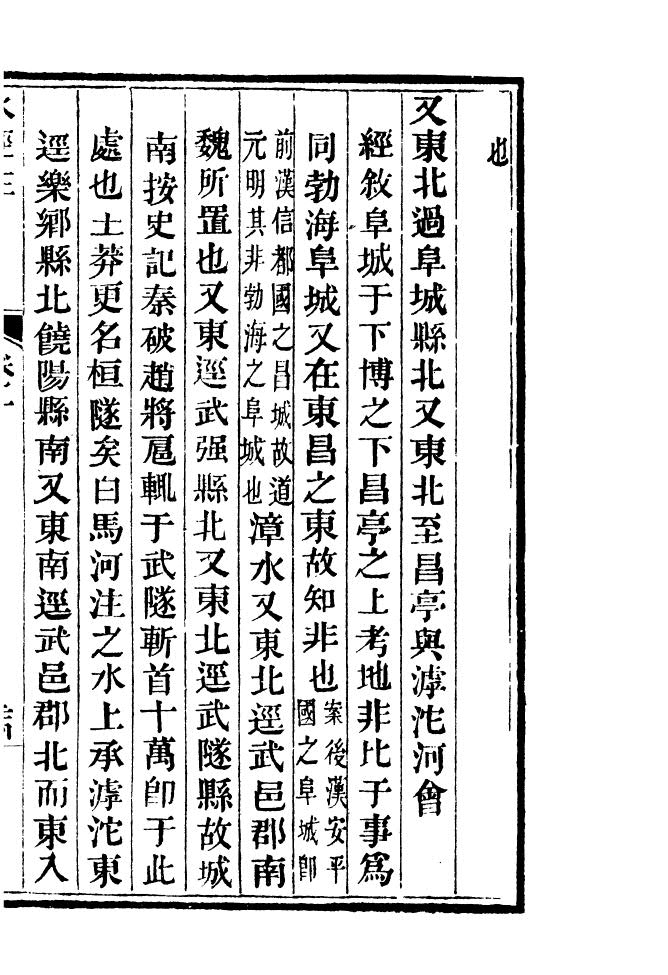 也
又東北過阜城縣北又東北至昌亭與滹沱河會
經敘阜城于下博之下昌亭之上考地非比于事爲
同勃海阜城又在東昌之東故知非也案後漢安平
國之阜城卽
前漢信都國之昌城故道
元明其非勃海之阜城也漳水又東北逕武邑郡南
魏所置也又東逕武强縣北又東北逕武隧縣故城
南按史記秦破趙將扈輒于武隧斬首十萬卽于此
處也王莽更名桓隧矣白馬河注之水上承滹沱東
逕樂鄉縣北饒陽縣南又東南逕武邑郡北而東入